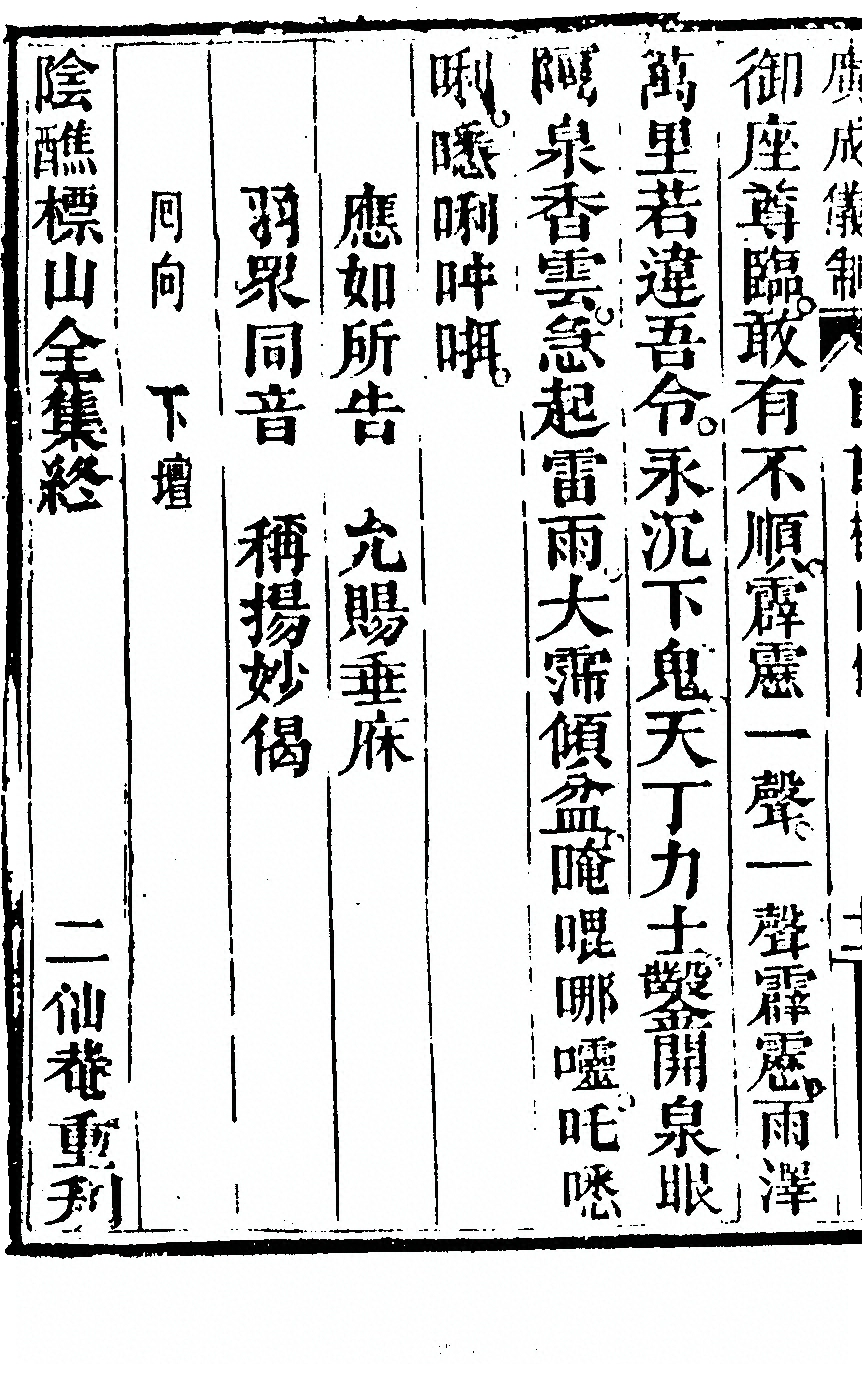 廣成儀制
御座尊臨敢有不順霹靂一聲一聲霹靂雨澤
萬里若違吾令永沉下鬼天丁力士鑿開泉眼
阿泉香雲急起雷雨大霈傾盆唵哩哪𡃤吒㘉
唎㘉唎吽㖿
應如所告　允賜垂庥
羽眾同音　稱揚妙偈
回向　下壇
陰醮標山全集終　二仙菴重刋